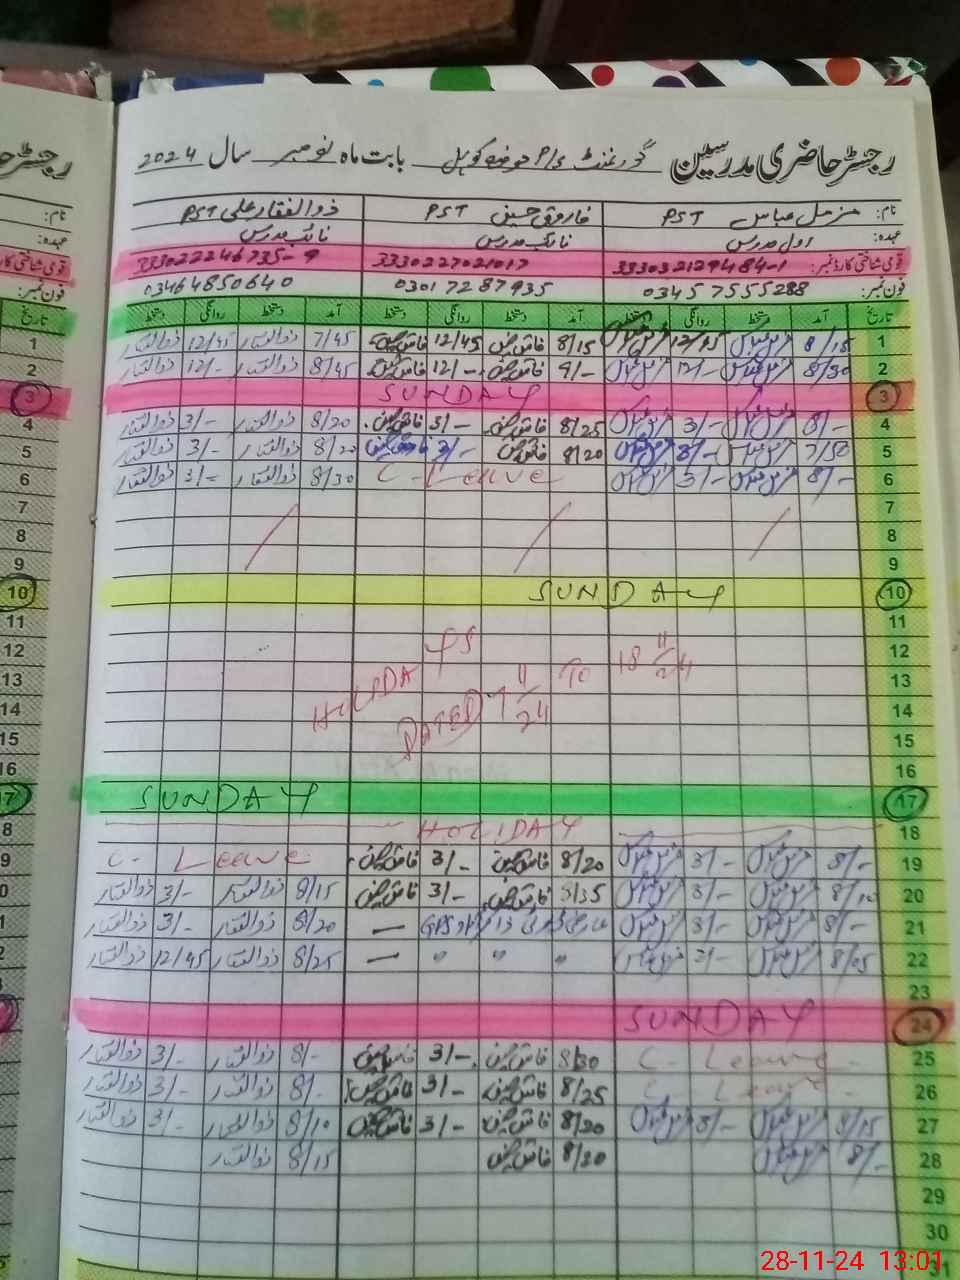 رجسٹر حاضری مدرسین گورنمنٹ بابت ماہ نومبر سال 2024
نام: مزمل عباس PST فاروق حسین PST ذوالفقار علی PST
عہدہ: اول مدرس نائب مدرس نائب مدرس
قومی شناختی کارڈ نمبر: 333032129484-1 3330227021017 333022246735-9
فون نمبر: 03457555288 03017287935 03464850640
تاریخ آمد دستخط روانگی دستخط آمد دستخط روانگی دستخط آمد دستخط روانگی دستخط
1 8/15 12/45 8/15 فاروق حسین 12/45 فاروق حسین 7/45 ذوالفقار 12/45 ذوالفقار
2 8/30 12/- 9/- فاروق حسین 12/- فاروق حسین 8/45 ذوالفقار 12/- ذوالفقار
3 SUNDAY
4 8/- 3/- 8/25 فاروق حسین 3/- فاروق حسین 8/20 ذوالفقار 3/- ذوالفقار
5 7/50 3/- 8/20 فاروق حسین 3/- فاروق حسین 8/20 ذوالفقار 3/- ذوالفقار
6 8/- 3/- C-Leave 8/30 ذوالفقار 3/- ذوالفقار
7
8
9
10 SUNDAY
11
12
13
14
15
16
HOLIDAYS
DATED 7 11/24 TO 18 11/24
17 SUNDAY
18 HOLIDAY
19 8/- 3/- 8/20 فاروق حسین 3/- فاروق حسین C- Leave
20 8/10 3/- 8/35 فاروق حسین 3/- فاروق حسین 8/15 ذوالفقار 3/- ذوالفقار
21 8/- 3/- GPS — 8/20 ذوالفقار 3/- ذوالفقار
22 8/05 3/- " " " — 8/25 ذوالفقار 12/45 ذوالفقار
23
24 SUNDAY
25 C- Leave - 8/30 فاروق حسین 3/- فاروق حسین 8/- ذوالفقار 3/- ذوالفقار
26 C- Leave - 8/25 فاروق حسین 3/- فاروق حسین 8/- ذوالفقار 3/- ذوالفقار
27 8/15 3/- 8/20 فاروق حسین 3/- فاروق حسین 8/10 ذوالفقار 3/- ذوالفقار
28 8/- 8/30 فاروق حسین 8/15 ذوالفقار
29
30
31
28-11-24 13:01